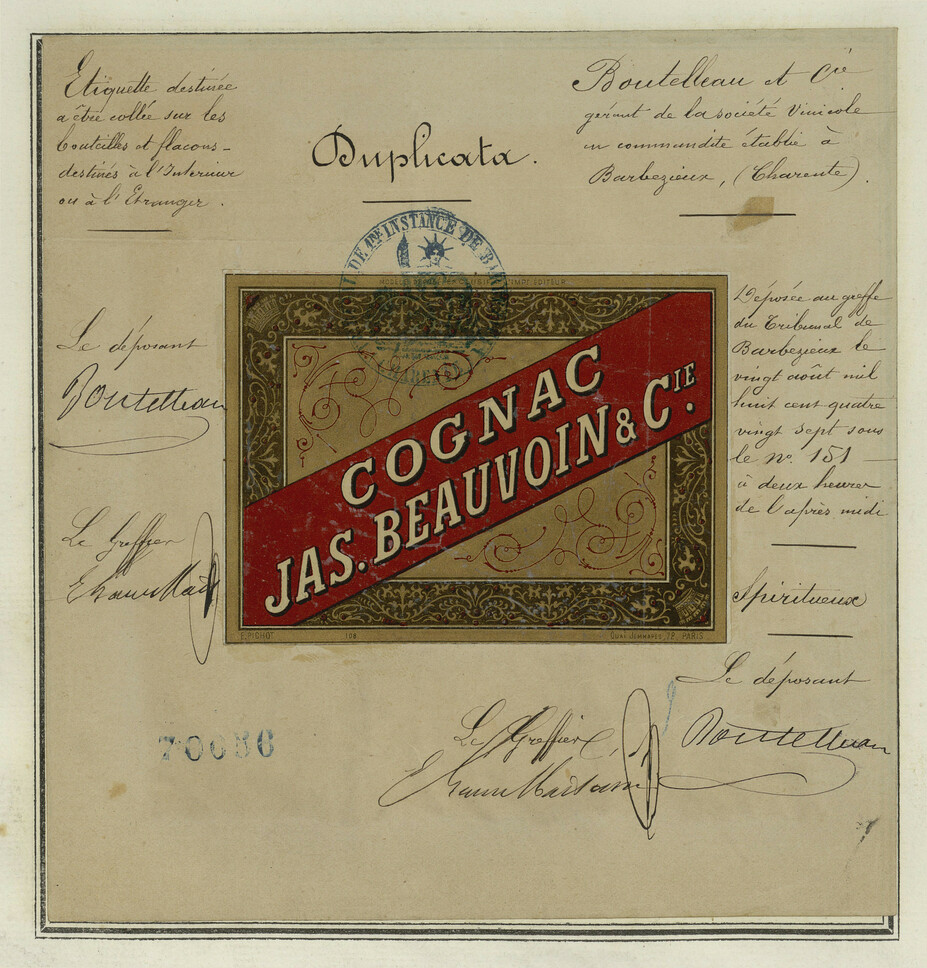 Etiquette destinée
a être collée sur les
bouteilles et flacons
destinés à l'Intérieur
ou à l'Etranger.
Duplicata.
Boutelleau et Cie
gérant de la société Vinicole
en commandite établie à
Barbezieux, (Charente).
DE 1RE INSTANCE DE BAR
Le déposant
Boutelleau
Le Greffier
COGNAC
JAS. BEAUVOIN & CIE.
E. PICHOT
QUAI JEMMAPES, 72, PARIS
Déposée au greffe
du Tribunal de
Barbezieux le
vingt août mil
huit cent quatre
vingt sept sous
le no. 151
à deux heures
de l'après midi
Spiritueux
Le déposant
Boutelleau
Le Greffier
70086